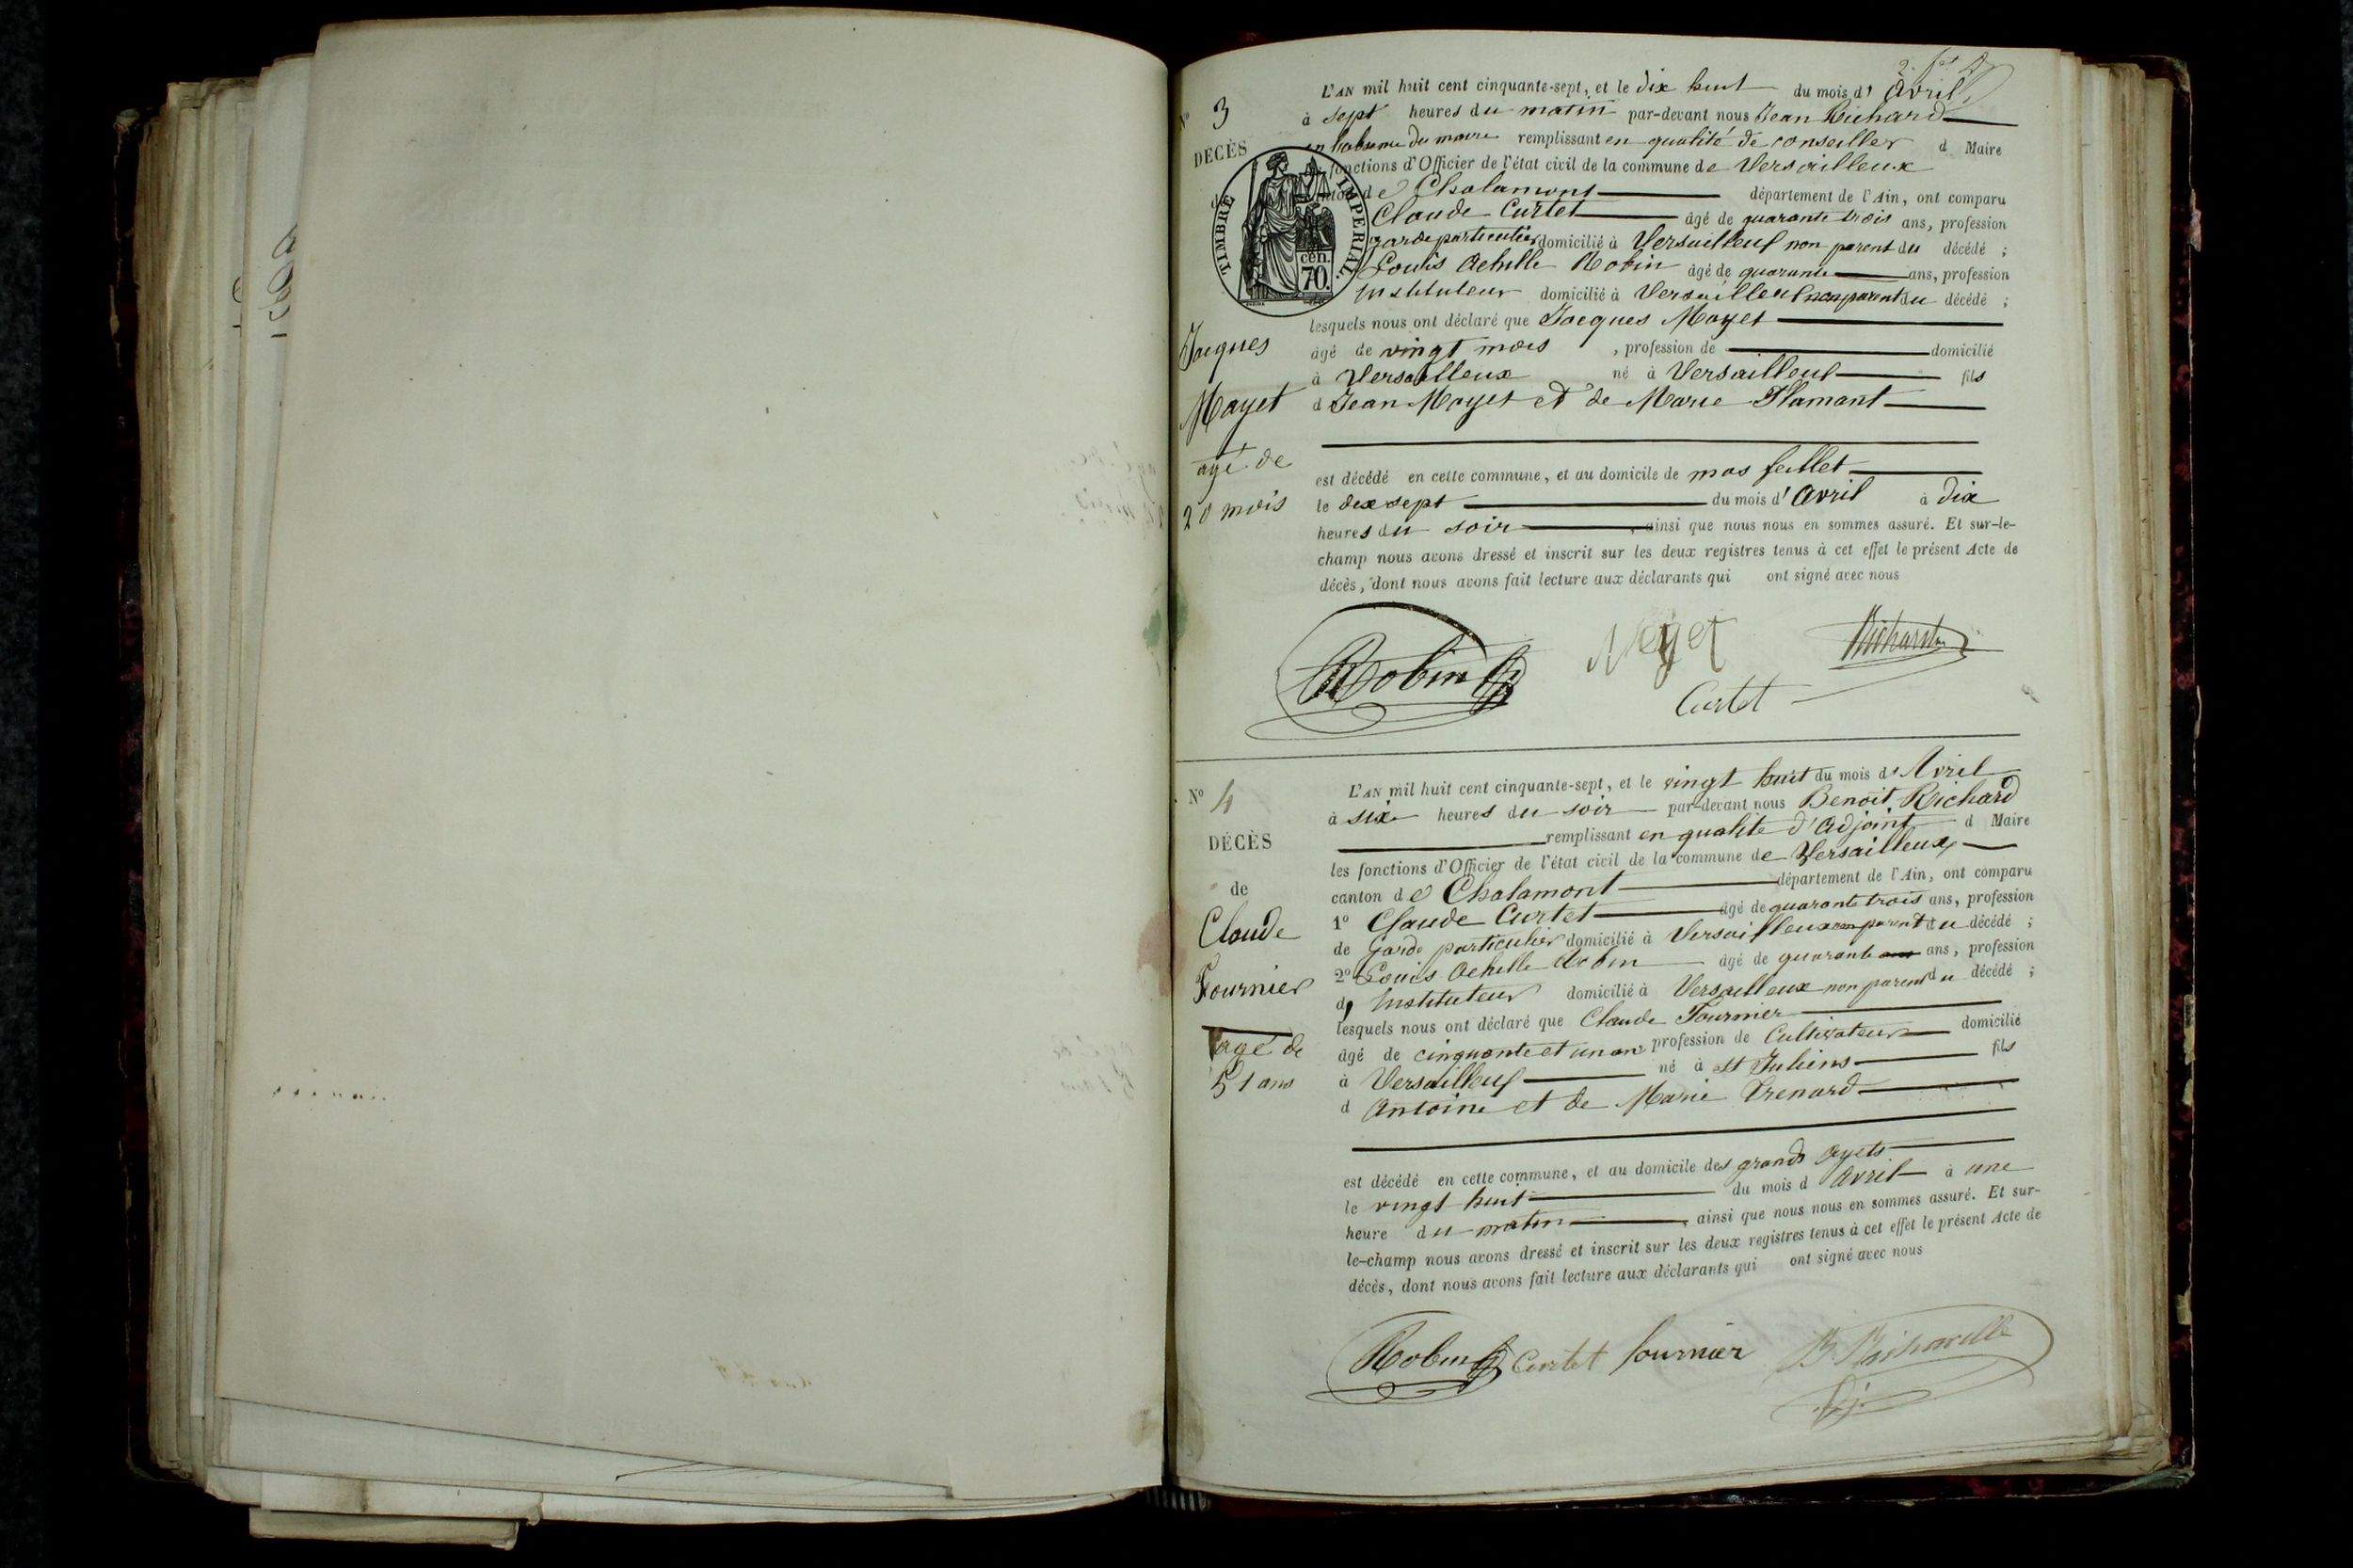 L'AN mil huit cent cinquante-sept, et le dix huit du mois d' Avril
N° 3
à sept heures du matin par-devant nous Jean Richard
DÉCÈS
du maire remplissant en qualité de conseiller d Maire
fonctions d'Officier de l'état civil de la commune de Versailleux
de Chalamont département de l'Ain, ont comparu
Claude Curtet âgé de quarante trois ans, profession
garde particulier domicilié à Versailleux non parent du décédé ;
Louis Achille Robin âgé de quarante ans, profession
instituteur domicilié à Versailleux non parent du décédé ;
TIMBRE IMPERIAL.
cen.
70.
lesquels nous ont déclaré que Jacques Mayet
Jacques
âgé de vingt mois , profession de domicilié
à Versailleux né à Versailleux fils
Mayet
d Jean Mayet et de Marie Flamant
agé de
est décédé en cette commune, et au domicile de mas feillet
20 mois
le dix sept du mois d' Avril à dix
heures du soir , ainsi que nous nous en sommes assuré. Et sur-le-
champ nous avons dressé et inscrit sur les deux registres tenus à cet effet le présent Acte de
décès, dont nous avons fait lecture aux déclarants qui ont signé avec nous
Robin Richard
Curtet
L'AN mil huit cent cinquante-sept, et le vingt huit du mois d' Avril
N° 4
à six heures du soir par-devant nous Benoit Richard
remplissant en qualité d'Adjoint d Maire
DÉCÈS
les fonctions d'Officier de l'état civil de la commune de Versailleux
de
canton de Chalamont département de l'Ain, ont comparu
1° Claude Curtet âgé de quarante trois ans, profession
Claude
de Garde particulier domicilié à Versailleux non parent du décédé ;
2° Louis Achille Robin âgé de quarante ans, profession
Fournier
d, instituteur domicilié à Versailleux non parent du décédé ;
lesquels nous ont déclaré que Claude Fournier
agé de
âgé de cinquante et un ans profession de Cultivateur domicilié
51 ans
à Versailleux né à St Juliens fils
d Antoine et de Marie Trenard
est décédé en cette commune, et au domicile des grands Ayets
le vingt huit du mois d Avril à une
heure du matin , ainsi que nous nous en sommes assuré. Et sur-
le-champ nous avons dressé et inscrit sur les deux registres tenus à cet effet le présent Acte de
décès, dont nous avons fait lecture aux déclarants qui ont signé avec nous
Robin Curtet fournier